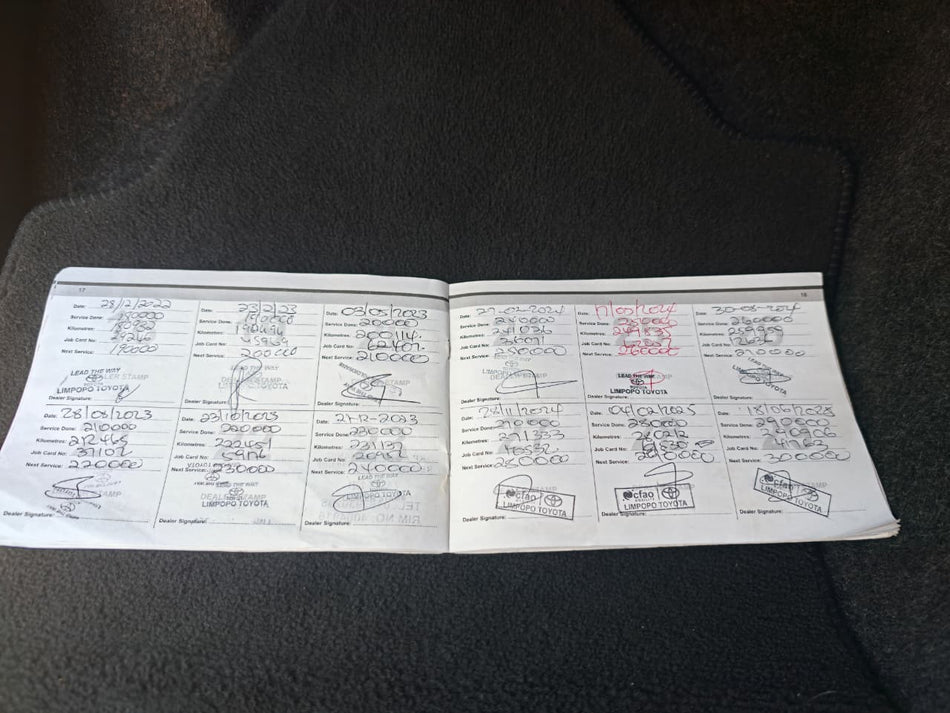 17
Date: 28/12/2022
Service Done: 180000
Kilometres: 180932
Job Card No: 29246
Next Service: 190000
LEAD THE WAY
DEALER STAMP
LIMPOPO TOYOTA
Dealer Signature:
Date: 23/2/23
Service Done: 190000
Kilometres: 190494
Job Card No:
Next Service: 200000
DEALER STAMP
LIMPOPO TOYOTA
Dealer Signature:
Date: 03/05/2023
Service Done: 200000
Kilometres: 200114
Job Card No: 62407
Next Service: 210000
STAMP
Dealer Signature:
Date: 28/08/2023
Service Done: 210000
Kilometres: 212465
Job Card No: 37102
Next Service: 220000
STAMP
Dealer Signature:
Date: 23/10/2023
Service Done: 220000
Kilometres: 222451
Job Card No:
Next Service: 230000
DEALER STAMP
LIMPOPO TOYOTA
Dealer Signature:
Date: 21-12-2023
Service Done: 230000
Kilometres: 231137
Job Card No: 20952
Next Service: 240000
LEAD THE WAY
LIMPOPO TOYOTA
Dealer Signature:
18
Date: 27-02-2024
Service Done: 240000
Kilometres: 241036
Job Card No:
Next Service: 250000
DEALER STAMP
LIMPOPO TOYOTA
Dealer Signature:
Date:
Service Done: 250000
Kilometres:
Job Card No:
Next Service: 260000
LEAD THE WAY
TOYOTA
Dealer Signature:
Date: 30-08-2024
Service Done: 260000
Kilometres: 259955
Job Card No:
Next Service: 270000
Dealer Signature:
Date: 28/11/2024
Service Done: 270000
Kilometres: 271333
Job Card No: 40532
Next Service: 280000
cfao
LIMPOPO TOYOTA
Dealer Signature:
Date: 04/02/2025
Service Done: 280000
Kilometres:
Job Card No:
Next Service: 290000
cfao
LIMPOPO TOYOTA
Dealer Signature:
Date:
Service Done: 290000
Kilometres: 290906
Job Card No: 41963
Next Service: 300000
cfao
LIMPOPO TOYOTA
Dealer Signature: